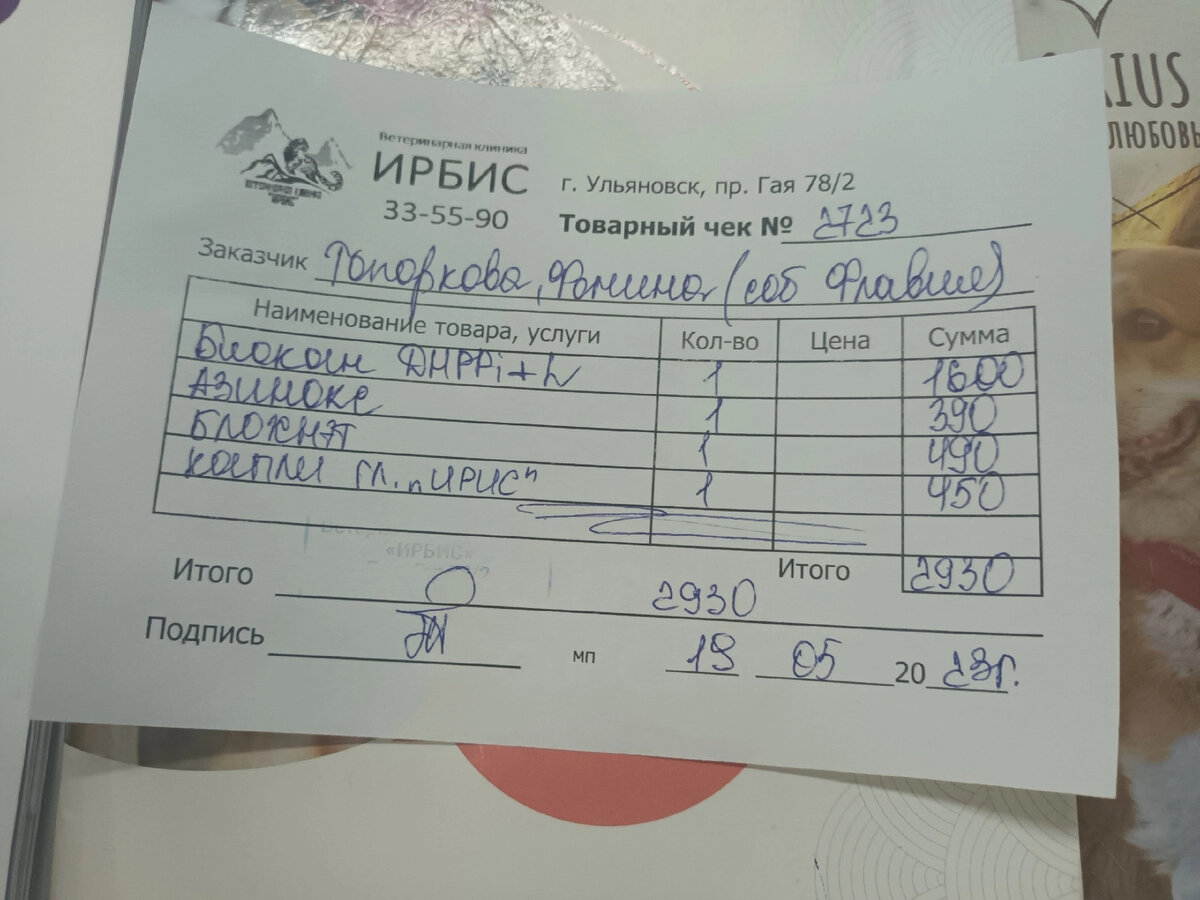 Ветеринарная клиника
ИРБИС
33-55-90
г. Ульяновск, пр. Гая 78/2
ВЕТЕРИНАРНАЯ КЛИНИКА
"ИРБИС"
Товарный чек № 2723
Заказчик Топоркова, Фомина (соб Флавия)
Наименование товара, услуги Кол-во Цена Сумма
Биокан DHPPi+L 1 1600
Азинокс 1 390
Блохнэт 1 490
капли гл. „Ирис" 1 450
«ИРБИС»
Итого 2930
Итого 2930
Подпись мп 19 05 20 23г.
RIUS
ЛЮБОВЬ